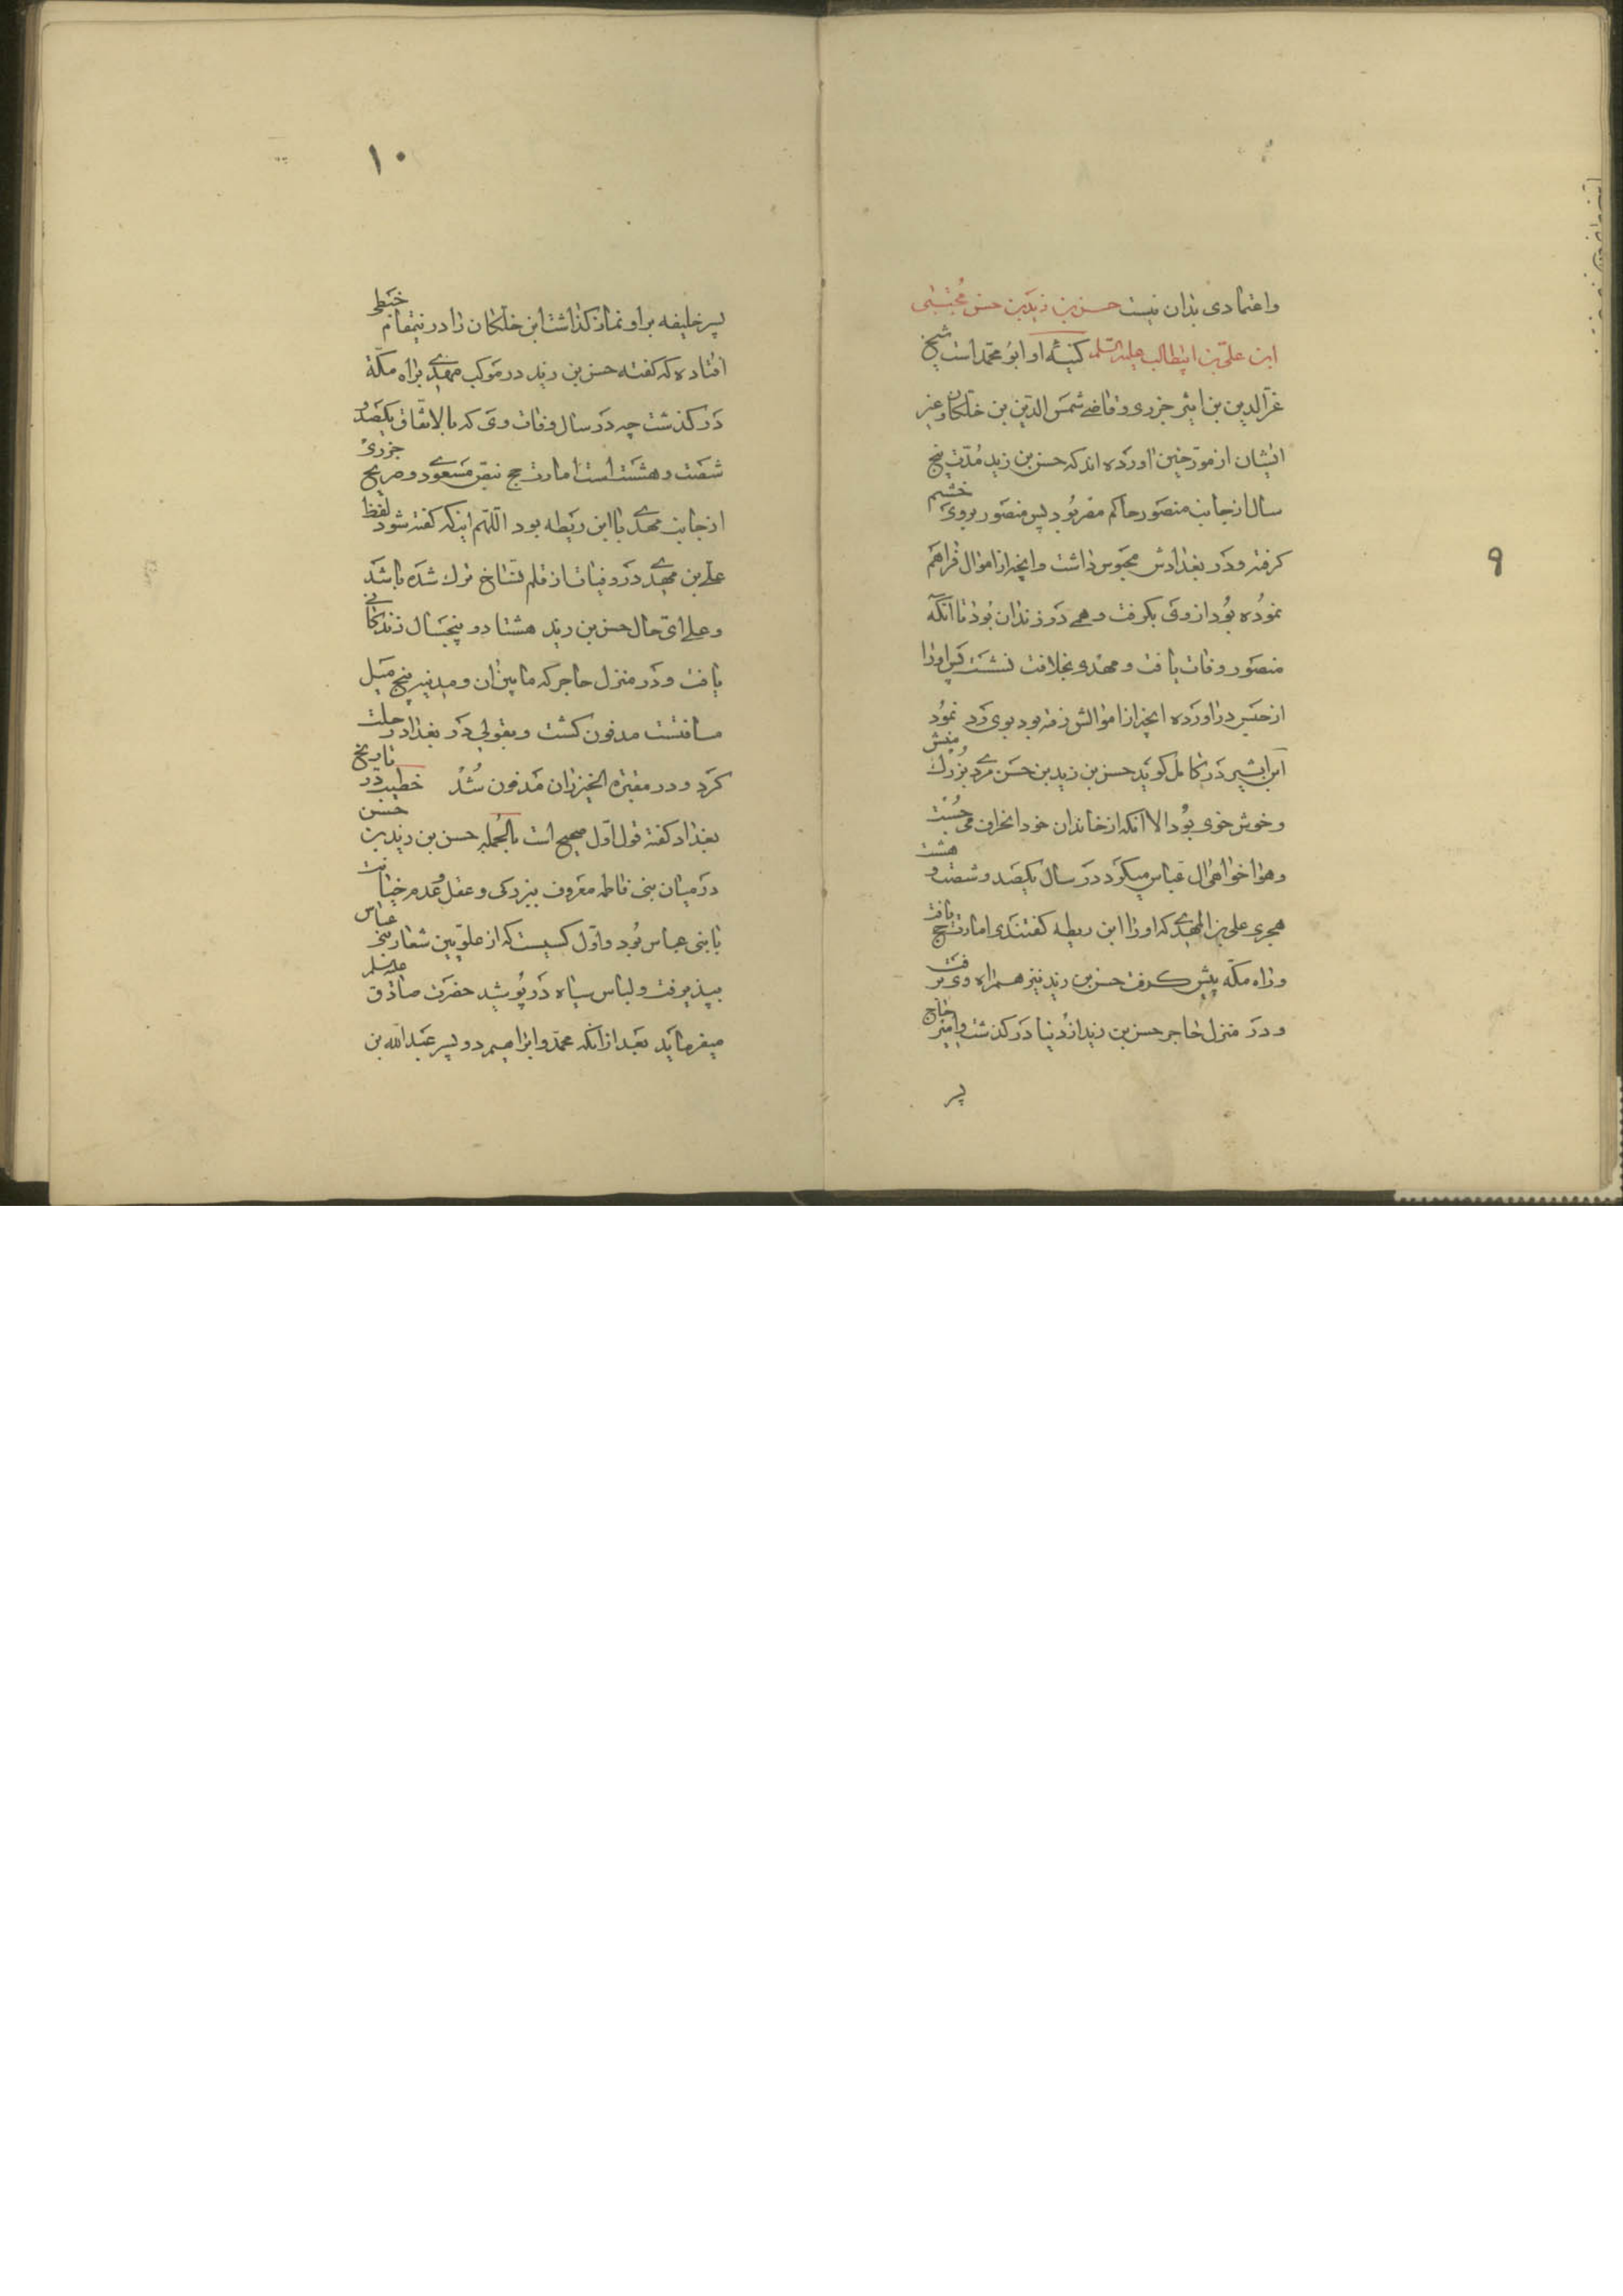 ۹
واعتمادی بدان نیست حسن بن زید بن حسن مجتبی
ابن علی بن ابیطالب علیه السلم کنیه او ابو محمد است شیخ
عز الدین بن اثیر جزری و قاضی شمس الدین بن خلکان و غیر
ایشان از مورخین آورده اند که حسن بن زید مدت پنج
سال از جانب منصور حاکم مقر بود پس منصور بر وی خشم
کرفته و در بغدادش محبوس داشت و انچه از اموال فراهم
نموده بود از وی بکرفت و همی در زندان بود تا آنکه
منصور وفات یافت و مهدی بخلافت نشست پس او را
از حبس در آورده انچه از اموالش رفته بود بوی رد نمود
ابن اثیر در کامل کوید حسن بن زید بن حسن مردی بزرك منش
و خوش خوی بود الا آنکه از خاندان خود انحراف می جست
و هوا خواهی ال عباس میکرد در سال یکصد و شصت و هشت
هجری علی بن المهدی که او را ابن ریطه کفتندی امارت حج یافت
و راه مکه پیش کرفت حسن بن زید نیز همراه وی برفت
و در منزل حاجر حسن بن زید از دنیا در کذشت و امیر حاج
پسر
۱۰
پسر خلیفه بر او نماز کذاشت ابن خلکان را در نیمقام خبطی
افتاده که کفته حسن بن زید در موکب مهدی براه مکة
در کذشت چه در سال وفات وی که بالاتفاق یکصد و
شصت و هشت است امارت حج بنص مسعودی و صریح جزری
از جانب مهدی با ابن ریطه بود اللهم اینکه کفته شود لفظ
علی بن مهدی در وفیات از قلم نساخ ترك شده باشد
و علی ای حال حسن بن زید هشتاد و پنجسال زندکانی
یافت و در منزل حاجر که مابین ان و مدینه پنج میل
مسافتست مدفون کشت و بقولی در بغداد رحلت
کرد و در مقبره الخیزران مدفون شد خطیب در تاریخ
بغداد کفته قول اول صحیح است بالجمله حسن بن زید بن حسن
در میان بنی فاطمه معروف بزیرکی و عقل و عدم خیانت
با بنی عباس بود و اول کسیست که از علویین شعار بنی عباس
بپذیرفت و لباس سیاه در پوشید حضرت صادق علیه السلم
میفرماید بعد از انکه محمد و ابراهیم دو پسر عبد الله بن